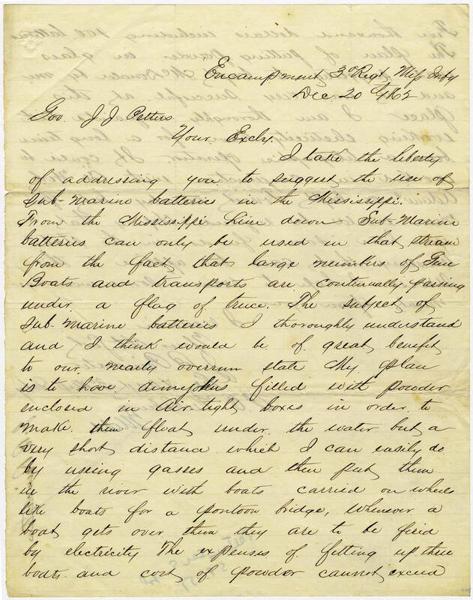 Encampment 3d Regt Miss Infy
Dec 20th 1862
Gov J J Pettus
Your Excly.
I take the liberty
of addressing you to suggest the use of
Sub-Marine batteries in the Mississippi.
From the Mississippi line down Sub-Marine
batteries can only be used in that stream
from the fact that large numbers of Gun
Boats and transports are continually passing
under a flag of truce. The subject of
Sub-Marine batteries I thoroughly understand
and I think would be of great benefit
to our nearly overrun state My plan
is to have demijohns filled with powder
enclosed in Air-tight boxes in order to
make them float under the water but a
very short distance which I can easily do
by useing gasses and then put them
in the river with boats carried on wheels
like boats for a pontoon bridge, whenever a
boat gets over them they are to be fired
by electricity The expenses of fitting up these
boats and cost of powder cannot exceed